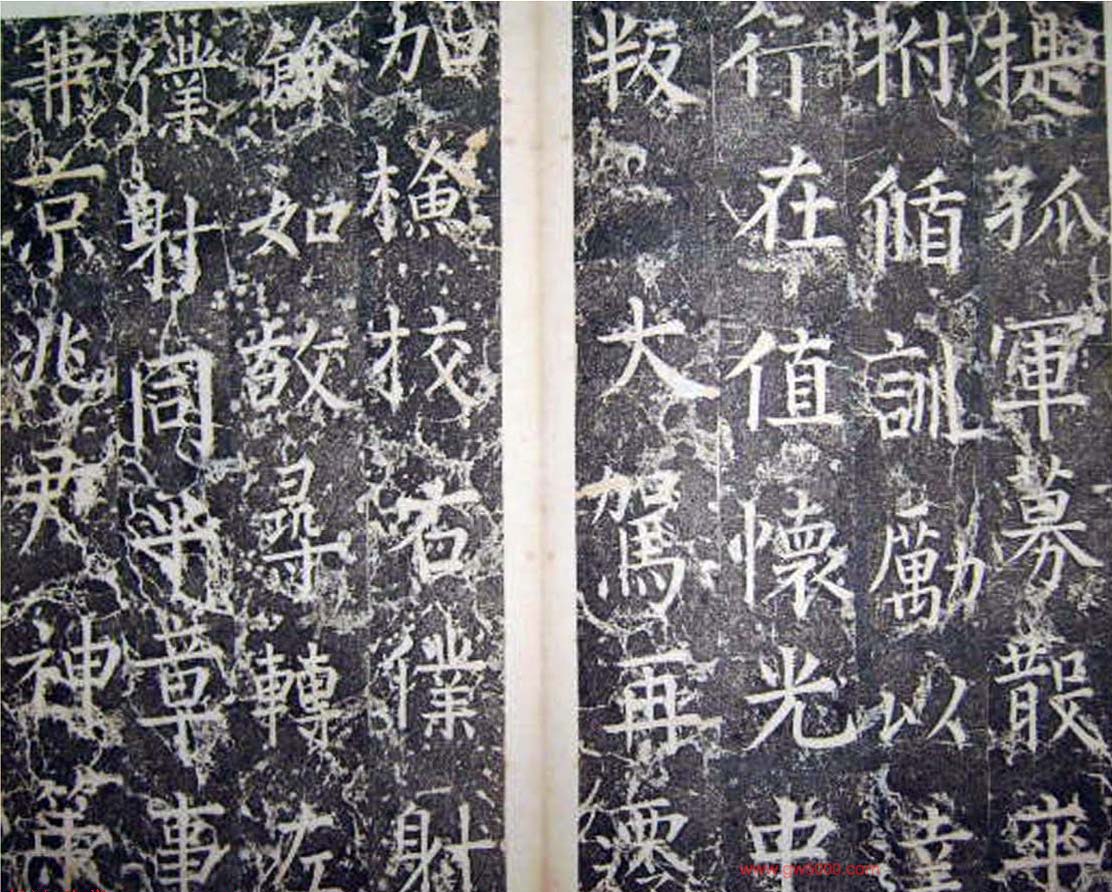 提孤軍募散卒
拊循訓勵以達
行在值懷光
叛大駕再遷
加檢校右僕射
餘如故尋轉左
僕射同平章事
兼京兆尹神策
www.gwz000.com